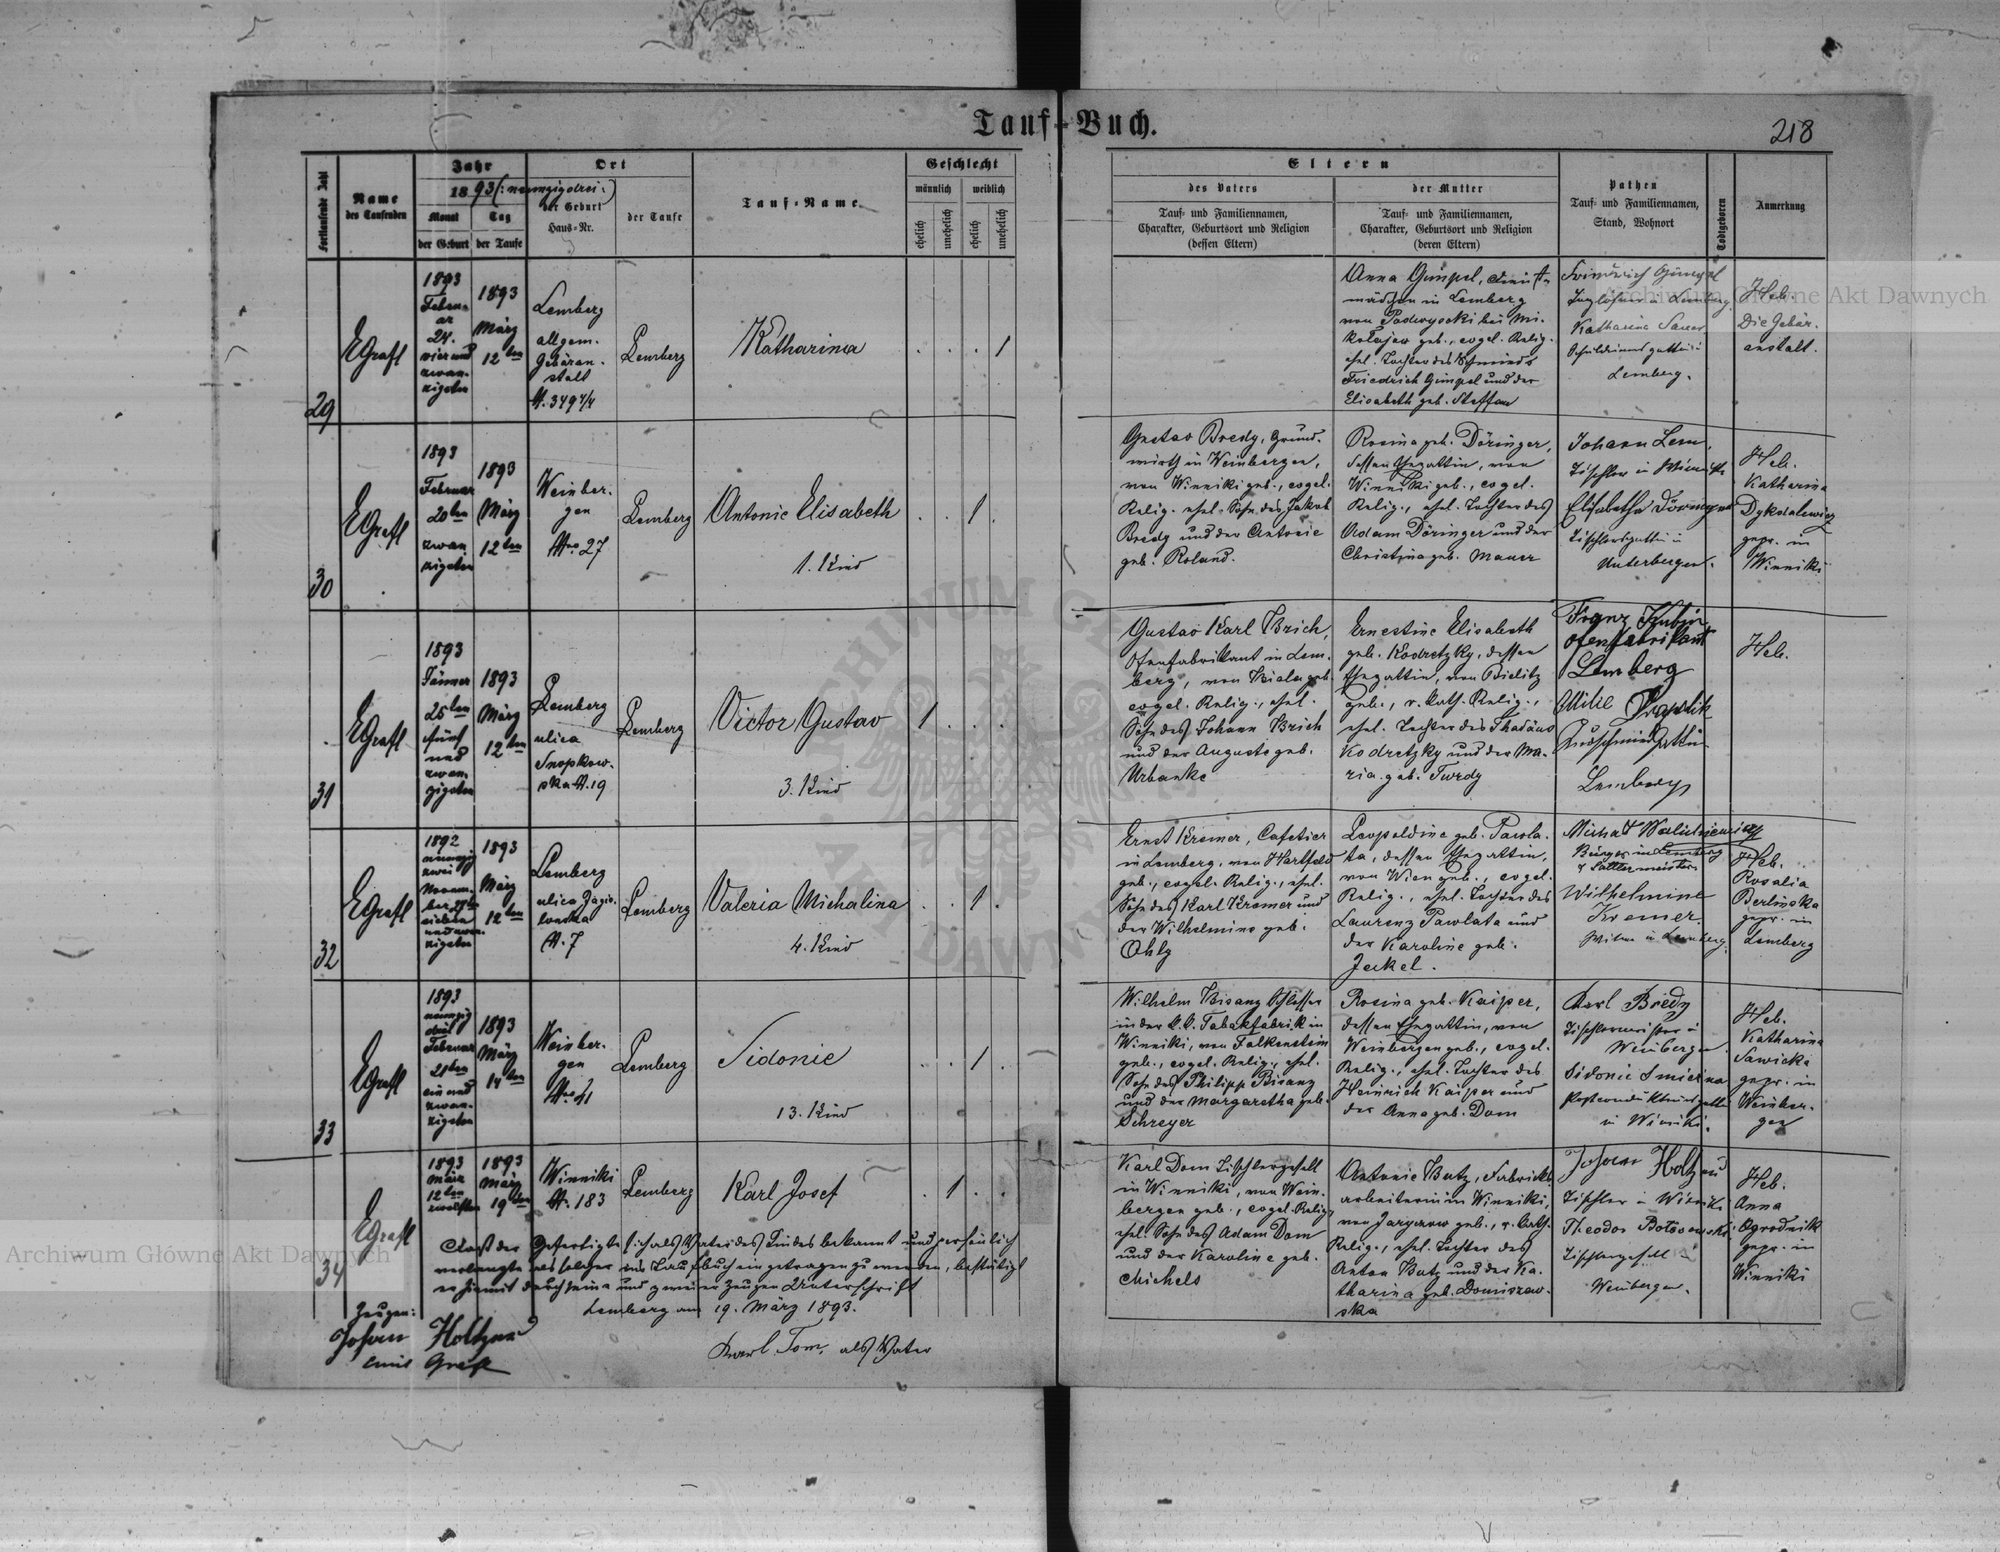 Tauf-Buch.
218
Fortlaufende Zahl
Name
des Taufenden
Jahr
1893 (: neunzigdrei :)
Monat
der Geburt
Tag
der Taufe
Ort
der Geburt
Haus-Nr.
der Taufe
Tauf-Name
Geschlecht
männlich
weiblich
ehelich
unehelich
ehelich
unehelich
Eltern
des Vaters
Tauf- und Familiennamen,
Charakter, Geburtsort und Religion
(dessen Eltern)
der Mutter
Tauf- und Familiennamen,
Charakter, Geburtsort und Religion
(deren Eltern)
Pathen
Tauf- und Familiennamen,
Stand, Wohnort
Todtgeboren
Anmerkung
29
EGrafl
1893
Febru-
ar
24.
vier und
zwan-
zigsten
1893
März
12ten
Lemberg
allgem.
Gebäran-
stalt
N. 349 4/4
Lemberg
Katharina
. . . 1
Anna Gimpel, Dienst-
mädchen in Lemberg
von Podwysocki bei Mi-
kolajow geb., evgel. Relig.
ehel. Tochter des Schmieds
Friedrich Gimpel und der
Elisabeth geb. Steffan
Friedrich Gimpel
Taglöhner in Lemberg
Katharina Sauer
Lemberg.
Heb.
Die Gebär-
anstalt.
30
EGrafl
1893
Februar
20ten
zwan-
zigsten
1893
März
12ten
Weinber-
gen
Nro 27
Lemberg
Antonie Elisabeth
1. Kind
. . 1 .
Gustav Bredy, Grund-
wirth in Weinbergen,
von Winniki geb., evgel.
Relig. ehel. Sohn des Jakob
Bredy und der Antonie
geb. Roland.
Rosina geb. Döringer,
dessen Ehegattin, von
Winniki geb., evgel.
Relig., ehel. Tochter des
Adam Döringer und der
Christina geb. Mauer
Johann Lem,
Tischler in Winniki
Elisabetha Döringer
Tischlersgattin in
Unterbergen.
Heb.
Katharina
Dykdalewicz
gepr. in
Winniki
31
EGrafl
1893
Jänner
25ten
fünf
und
zwan-
zigsten
1893
März
12ten
Lemberg
ulica
Snopkow-
ska N. 19
Lemberg
Victor Gustav
3. Kind
1 . . .
Gustav Karl Brich,
Ofenfabrikant in Lem-
berg, von Biala geb.
evgel. Relig., ehel.
Sohn des Johann Brich
und der Auguste geb.
Urbanke
Ernestine Elisabeth
geb. Kodretzky, dessen
Ehegattin, von Bielitz
geb., r. kath. Relig.,
ehel. Tochter des Thadäus
Kodretzky und der Ma-
ria geb. Twrdy
Franz Kubin
Ofenfabrikant
Lemberg
Lemberg
Heb.
32
EGrafl
1892
neunzig
zwei
Novem-
ber 27ten
sieben
und zwan-
zigsten
1893
März
12ten
Lemberg
ulica Jagie-
lonska
N. 7
Lemberg
Valeria Michalina
4. Kind
. . 1 .
Ernst Kremer, Cafetier
in Lemberg, von Hartfeld
geb., evgel. Relig., ehel.
Sohn des Karl Kremer und
der Wilhelmine geb.
Ohly
Leopoldine geb. Pawla-
ta, dessen Ehegattin,
von Wien geb., evgel.
Relig., ehel. Tochter des
Laurenz Pawlata und
der Karoline geb.
Jeckel.
Michał Walichiewicz
Bürger in Lemberg
& Sattlermeister
Wilhelmine
Kremer
Witwe in Lemberg.
Heb.
Rosalia
Berlinska
gepr. in
Lemberg
33
EGrafl
1893
neunzig
drei
Februar
21ten
ein und
zwan-
zigsten
1893
März
14ten
Weinber-
gen
Nro 41
Lemberg
Sidonie
13. Kind
. . 1 .
Wilhelm Bisanz Schlosser
in der k. k. Tabakfabrik in
Winniki, von Falkenstein
geb., evgel. Relig., ehel.
Sohn des Philipp Bisanz
und der Margaretha geb.
Schreyer
Rosina geb. Kaiper,
dessen Ehegattin, von
Weinbergen geb., evgel.
Relig., ehel. Tochter des
Heinrich Kaiper und
der Anna geb. Dom
Karl Bredy
Tischlermeister in
Weinbergen
Sidonie Smietna
in Winniki.
Heb.
Katharina
Sawicka
gepr. in
Weinber-
gen
34
EGrafl
1893
März
12ten
zwölften
1893
März
19ten
Winniki
N. 183
Lemberg
Karl Josef
. 1 . .
Karl Dom Tischlergesell
in Winniki, von Wein-
bergen geb., evgel. Relig.
ehel. Sohn des Adam Dom
und der Karoline geb.
Michels
Antonie Butz, Fabricks-
arbeiterin in Winniki,
von Jaryczow geb., r. kath.
Relig., ehel. Tochter des
Anton Butz und der Ka-
tharina geb. Domiszew-
ska
Johann Holtzmann
Tischler in Winniki
Theodor Botoszewski
Tischlergesell in
Weinbergen.
Heb.
Anna
Ogrodnik
gepr. in
Winniki
Dass der Gefertigte sich als Vater des Kindes bekannt und persönlich
verlangte als solcher ins Taufbuch eingetragen zu werden, bestätigt
er hiemit durch seine und zweier Zeugen Unterschrift
Lemberg am 19. März 1893.
Zeugen:
Johann Holtzmann
Emil Grafl
Karl Tom, als Vater
Archiwum Główne Akt Dawnych
Archiwum Główne Akt Dawnych